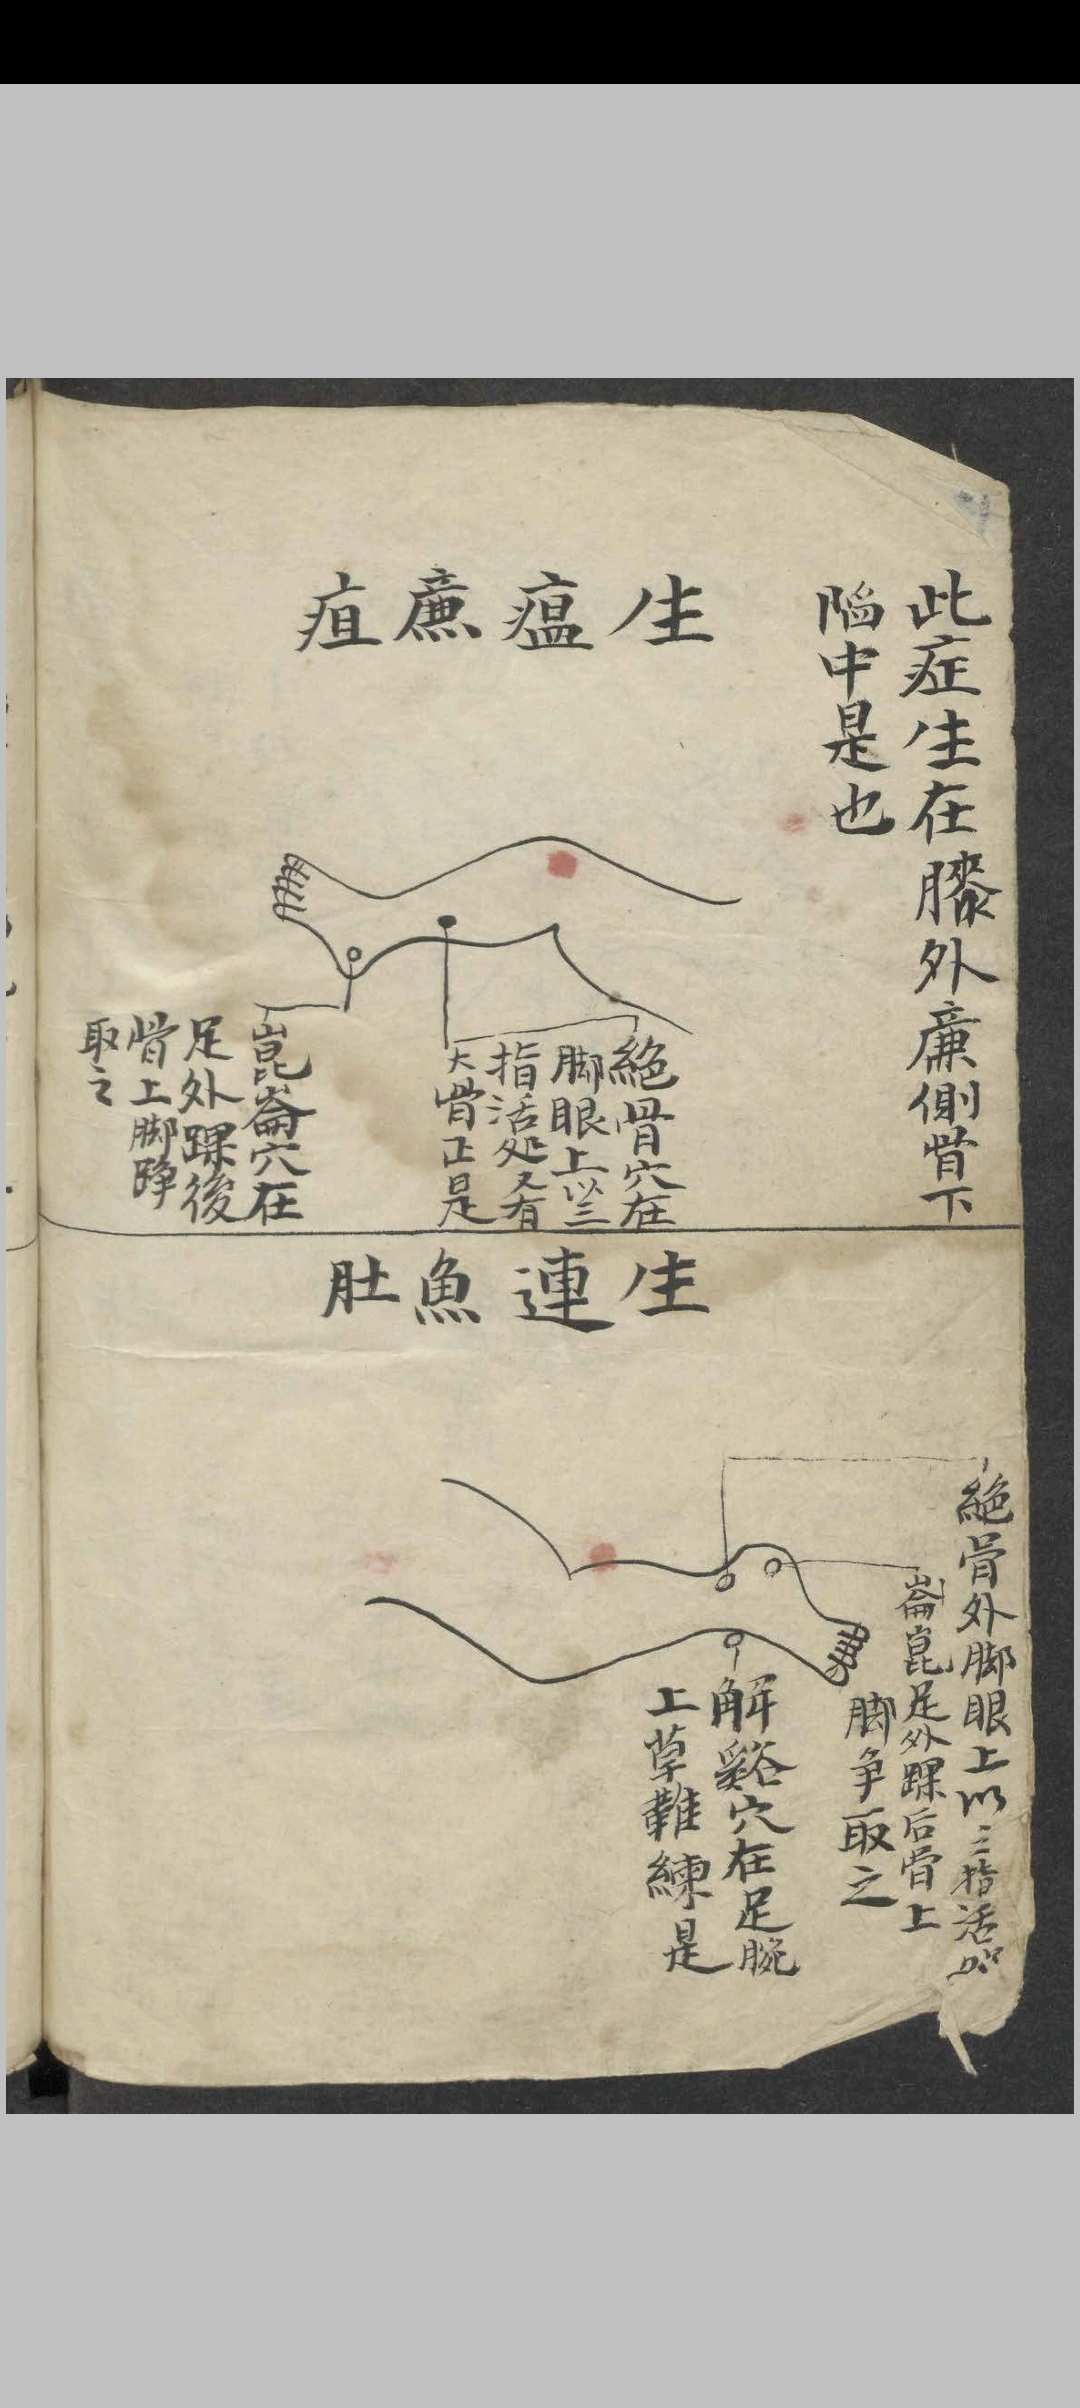 此症生在膝外廉側骨下
陷中是也
生瘟廉疽
絕骨穴在
脚眼上以三
指活处又有
大骨正是
崑崙穴在
足外踝後
骨上脚踭
取之
生連魚肚
絕骨外脚眼上以三指活处
崙崑足外踝后骨上
脚争取之
解谿穴在足腕
上草鞋練是